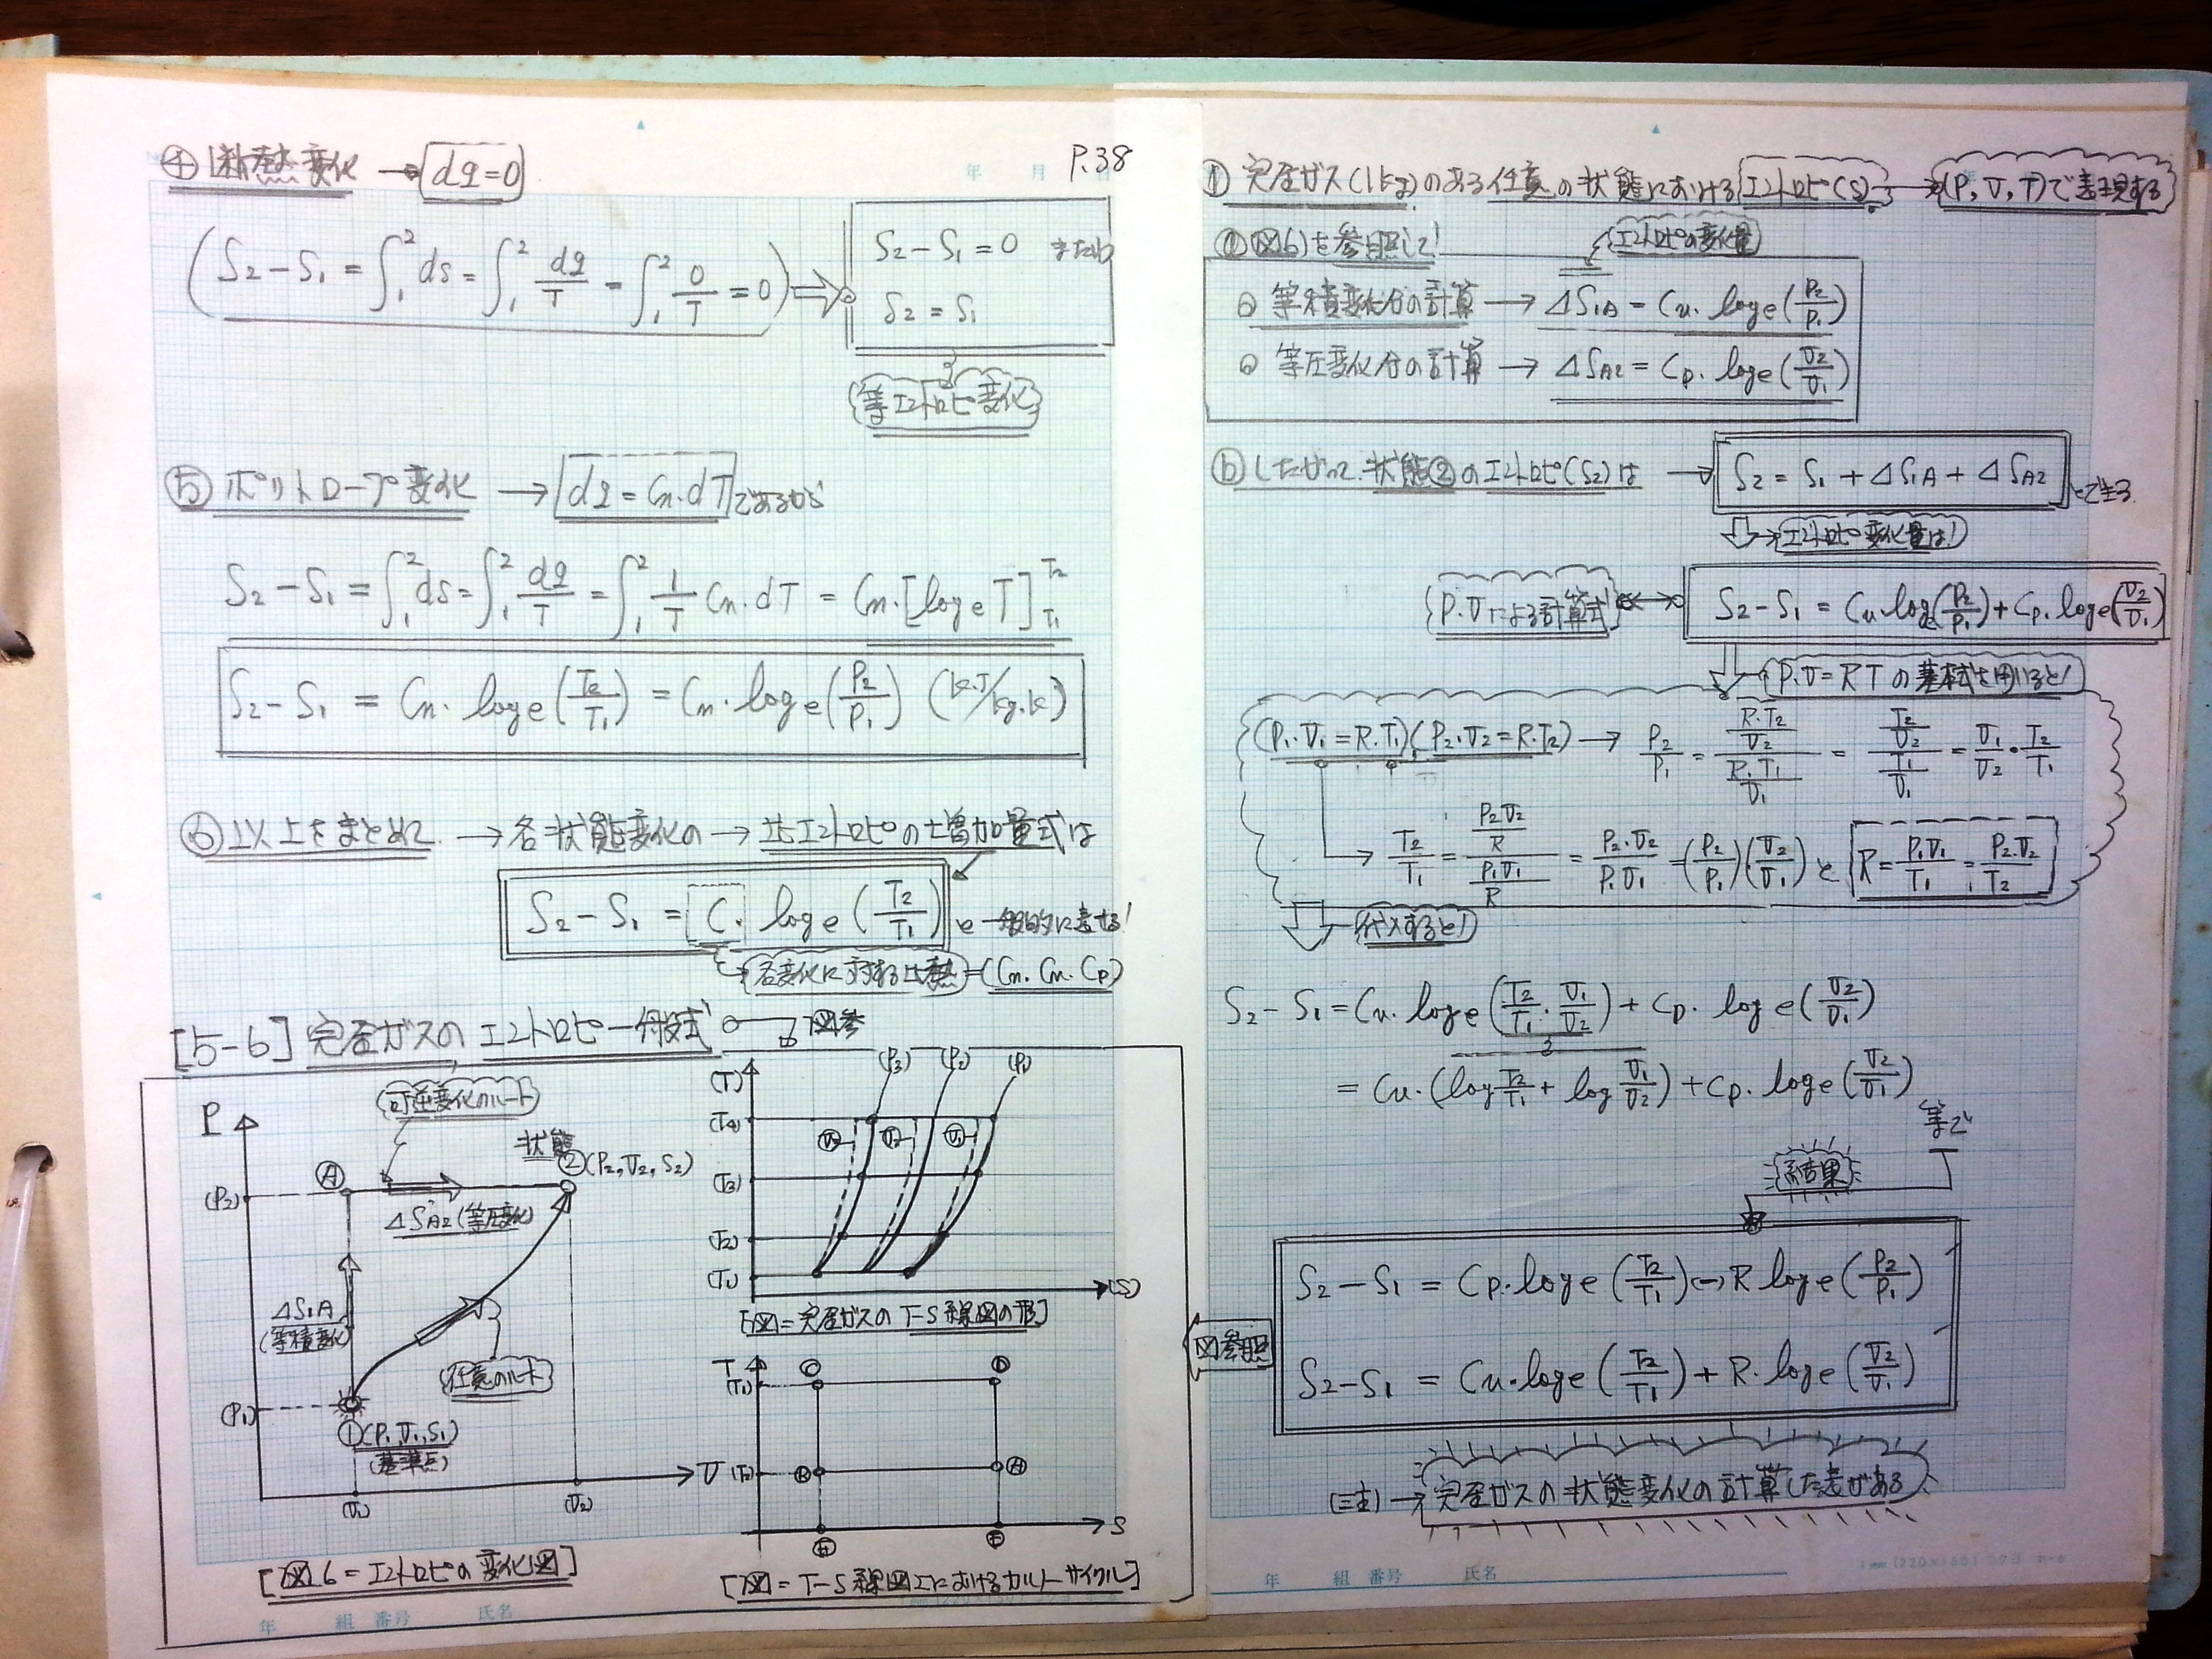 P.38
④ 断熱変化 → dq=0
(S₂-S₁ = ∫₁² ds = ∫₁² dq/T = ∫₁² 0/T = 0) ⇒ S₂-S₁=0 または
S₂=S₁
等エントロピ変化
⑤ ポリトロープ変化 → dq=Cn・dT であるから
S₂-S₁ = ∫₁² ds = ∫₁² dq/T = ∫₁² 1/T Cn・dT = Cn・[logeT]T₁T₂
S₂-S₁ = Cn・loge(T₂/T₁) = Cn・loge(P₂/P₁) (kJ/kg・k)
⑥ 以上をまとめて → 各状態変化の → 比エントロピの増加量式は
S₂-S₁ = C・loge(T₂/T₁) と一般的に表せる!
各変化に対する比熱=(Cn. Cn. Cp)
[5-6] 完全ガスのエントロピー般式 図参
P
可逆変化のルート
状態
②(P₂,V₂,S₂)
Ⓐ
(P₂)
ΔSA2 (等圧変化)
ΔS1A
(等積変化)
任意のルート
(P₁)
①(P₁,V₁,S₁)
(基準点)
(V₁) (V₂) V
[図6=エントロピの変化図]
(T) (P₃) (P₂) (P₁)
(T₄)
(T₃)
(T₂)
(T₁) (S)
[図=完全ガスのT-S線図の形]
T Ⓒ Ⓓ
(T₁)
(T₂) Ⓑ Ⓐ
S
[図=T-S線図上におけるカルノーサイクル]
① 完全ガス(1kg)のある任意の状態におけるエントロピ(S) → (P,V,T)で表現する
ⓐ 図6)を参照して! エントロピの変化量
○ 等積変化分の計算 → ΔS1A = Cv・loge(P₂/P₁)
○ 等圧変化分の計算 → ΔSA2 = Cp・loge(V₂/V₁)
ⓑ したがって、状態②のエントロピ(S₂)は → S₂ = S₁ + ΔS1A + ΔSA2 とできる
エントロピ変化量は!
P.Vによる計算式 ↔ S₂-S₁ = Cv log(P₂/P₁) + Cp・loge(V₂/V₁)
P.V=RTの基本式を用いると!
(P₁・V₁=R.T₁)(P₂・V₂=R・T₂) → P₂/P₁ = (R・T₂/V₂)/(R・T₁/V₁) = (T₂/V₂)/(T₁/V₁) = V₁/V₂・T₂/T₁
→ T₂/T₁ = (P₂V₂/R)/(P₁V₁/R) = P₂・V₂/P₁・V₁ = (P₂/P₁)(V₂/V₁) と R = P₁V₁/T₁ = P₂.V₂/T₂
代入すると!
S₂-S₁ = Cv・loge(T₂/T₁・V₁/V₂) + Cp・loge(V₂/V₁)
= Cv・(log T₂/T₁ + log V₁/V₂) + Cp・loge(V₂/V₁)
等で
結果
S₂-S₁ = Cp・loge(T₂/T₁)(-)R loge(P₂/P₁)
図参照
S₂-S₁ = Cv・loge(T₂/T₁) + R・loge(V₂/V₁)
(注) → 完全ガスの状態変化の計算した表がある
年 組 番号 氏名
年 組 番号 氏名